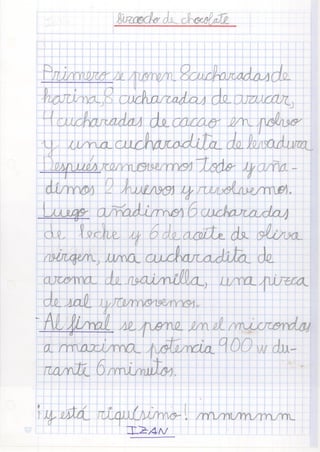 Bizcocho de chocolate
Primero se ponen 8 cucharadas de
harina, 8 cucharadas de azucar,
4 cucharadas de cacao en polvo
y una cucharadita de levadura
Después removemos todo y aña-
dimos 2 huevos y revolvemos.
Luego añadimos 6 cucharadas
de leche y 6 de aceite de oliva
virgen, una cucharadita de
aroma de vainilla, una pizca
de sal y removemos.
-Al final se pone en el microondas
a maxima potencia 900 w du-
rante 6 minutos.
¡y está riquísimo! mmmmmm
IZAN